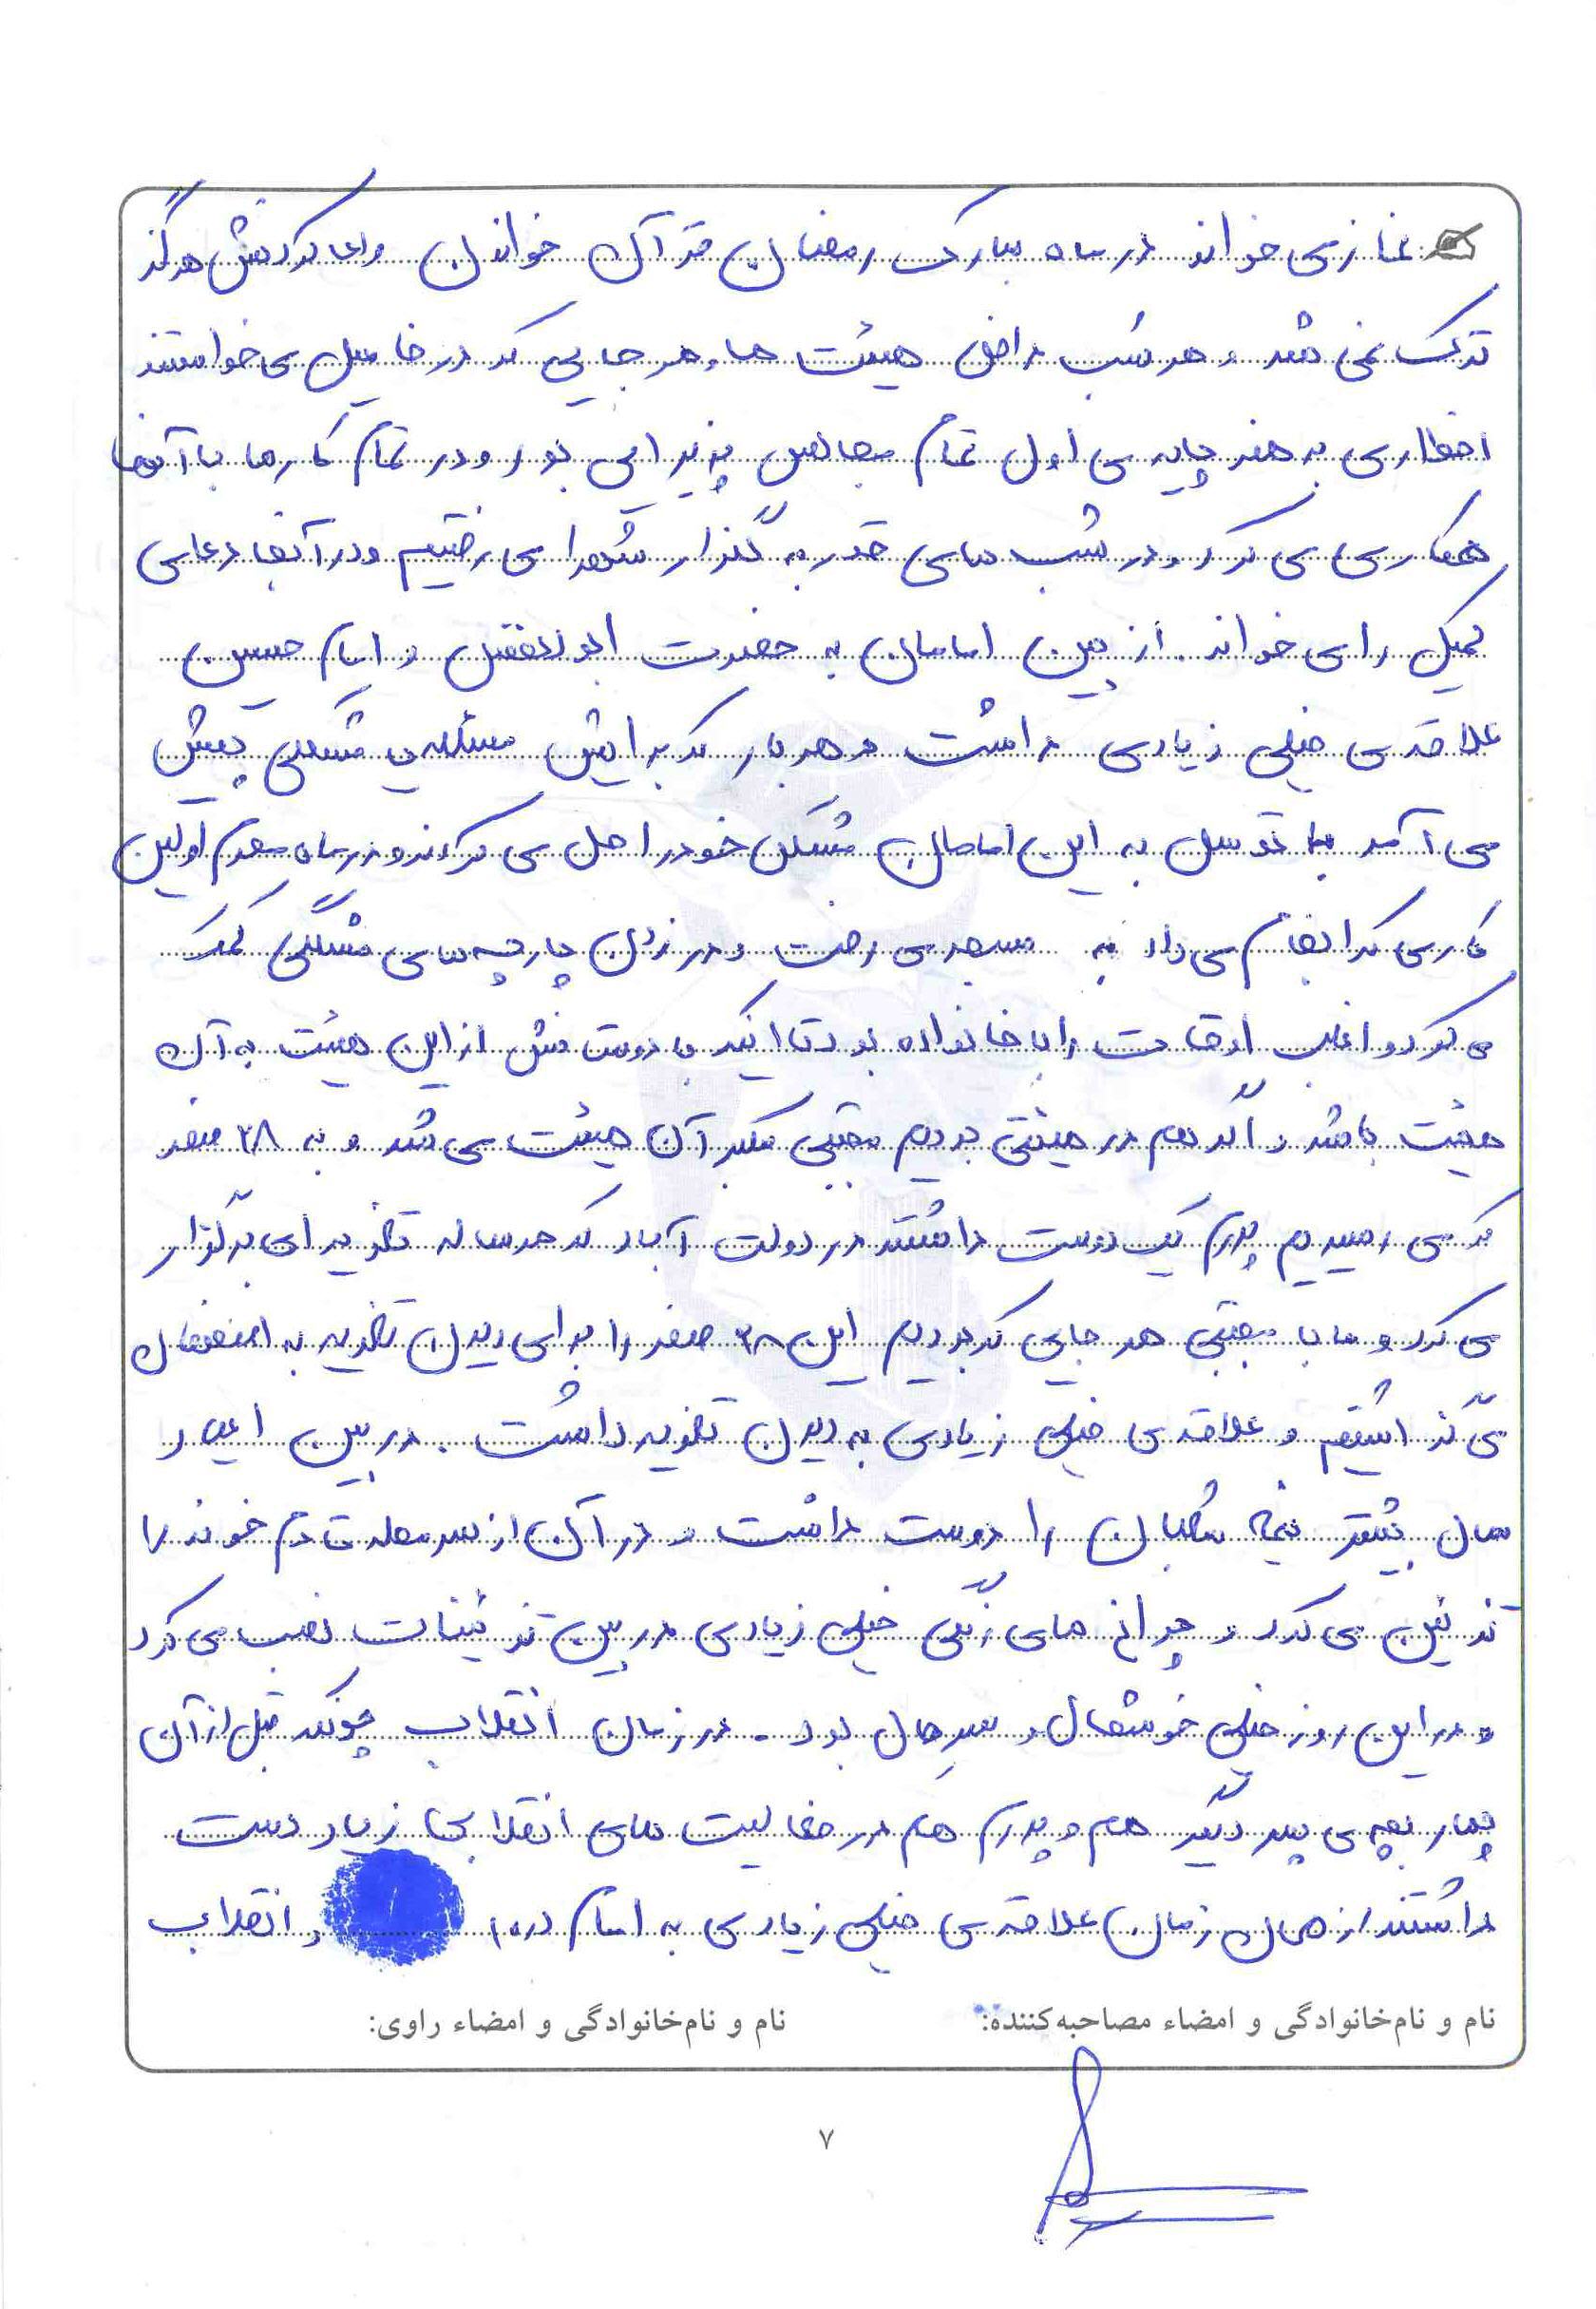 نماز می خواند در ماه مبارک رمضان قرآن خواندن و دعا کردنش هرگز
ترک نمی شد و هر شب داخل هیئت ها و هر جایی که در فامیل می خواستند
افطاری بدهند پایه ی اول تمام مجالس پذیرایی بود و در تمام کارها با آنها
همکاری می کرد و در شب های قدر به گلزار شهدا می رفتیم و در آنجا دعای
کمیل را می خواند. از بین امامان به حضرت ابوالفضل و امام حسین
علاقه ی خیلی زیادی داشت و هر بار که برایش مسئله ی مشکلی پیش
می آمد با توسل به این امامان مشکل خود را حل می کردند و در ماه محرم اولین
کاری که انجام می داد به مسجد می رفت و در زدن پارچه های مشکی کمک
می کرد و اغلب اوقات را با خانواده بود تا اینکه با دوستانش از این هیئت به آن
هیئت باشد و اگر هم در هیئتی بودیم مجتبی مکبر آن هیئت می شد و به ۲۸ صفر
که می رسیدیم پدرم یک دوست داشتند در دولت آباد که هر ساله تعزیه ای برگزار
می کرد و ما با مجتبی هر جایی که بودیم این ۲۸ صفر را برای دیدن تعزیه به اصفهان
می گذاشتیم و علاقه ی خیلی زیادی به دیدن تعزیه داشت. در بین اعیاد
سال بیشتر نیمه شعبان را دوست داشت و در آن از سر محله تا دم خونه را
تزئین می کرد و چراغ های رنگی خیلی زیادی در بین تزئینات نصب می کرد
و در این روز خیلی خوشحال و سرحال بود. در زمان انقلاب چونکه قبل از آن
چهار بچه ی پسر دیگر هم و پدرم هم در فعالیت های انقلابی زیاد دست
داشتند از همان زمان علاقه ی خیلی زیادی به امام در و انقلاب
نام و نام‌خانوادگی و امضاء مصاحبه‌کننده: نام و نام‌خانوادگی و امضاء راوی:
۷